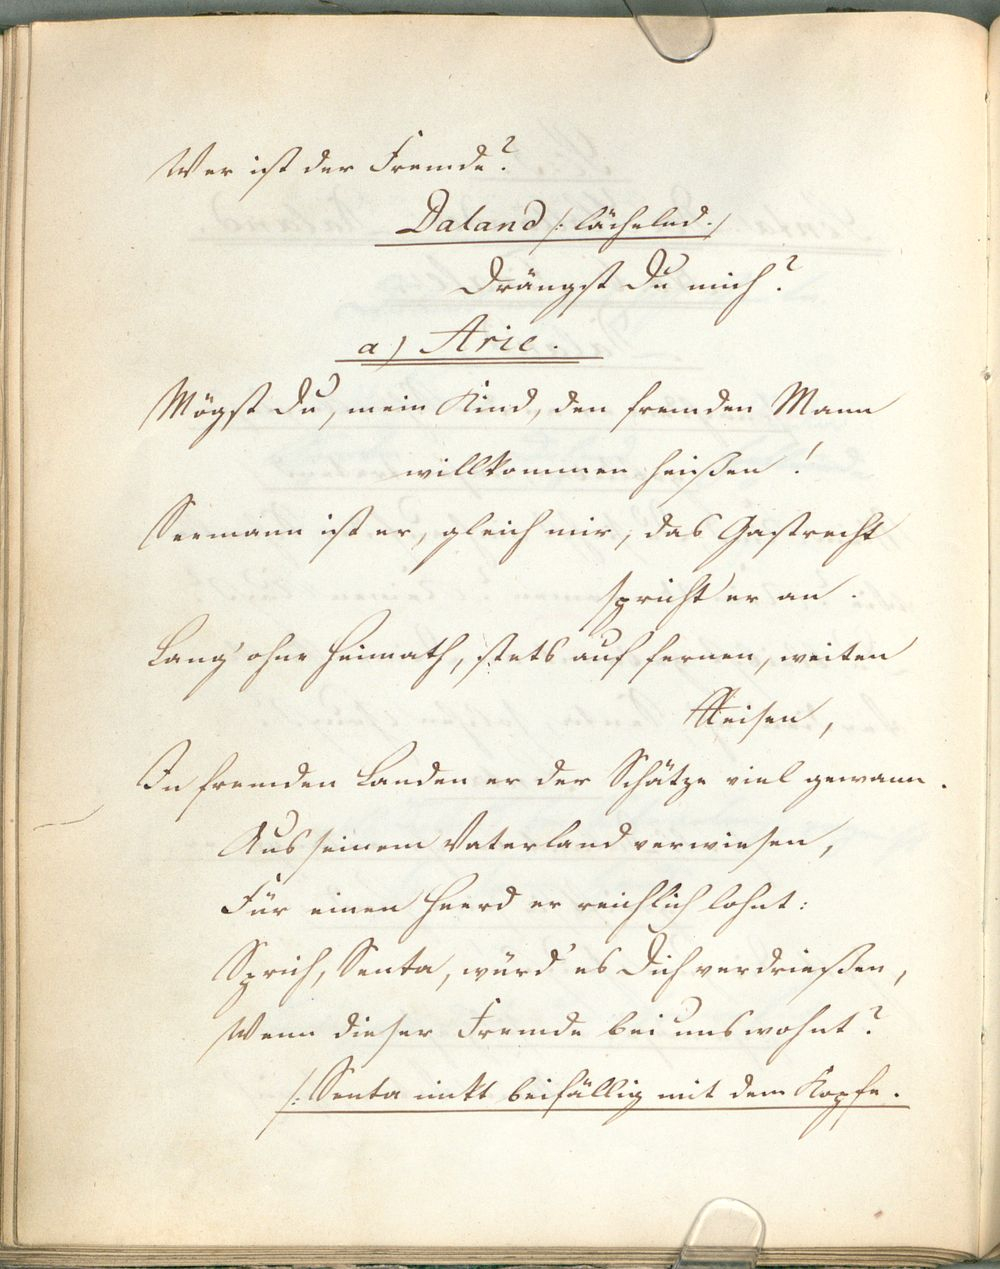 Wer ist der Fremde?
Daland /: lächelnd. /
Drängst Du mich?
a) Arie.
Mögst Du, mein Kind, den fremden Mann
willkommen heißen!
Seemann ist er, gleich mir, das Gastrecht
spricht er an.
Lang' ohne Heimath, stets auf fernen, weiten
Reisen,
In fremden Landen er der Schätze viel gewann.
Aus seinem Vaterland verwiesen,
Für einen Heerd er reichlich lohnt:
Sprich, Senta, würd' es Dich verdrießen,
Wenn dieser Fremde bei uns wohnt?
/: Senta nickt beifällig mit dem Kopfe.